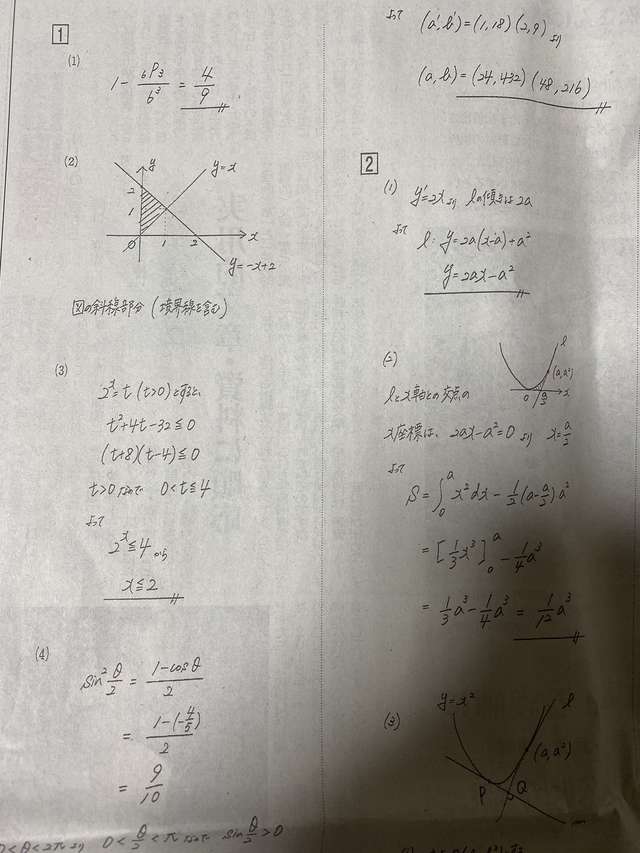 1
(1)
1 - ₆P₃/6³ = 4/9
(2)
y
y=x
2
1
0 1 2 x
y=-x+2
図の斜線部分（境界線を含む）
(3)
2ˣ=t (t>0)とすると、
t²+4t-32≦0
(t+8)(t-4)≦0
t>0なので 0<t≦4
よって
2ˣ≦4から
x≦2
(4)
sin²θ/2 = (1-cosθ)/2
= (1-(-4/5))/2
= 9/10
0<θ<2πより 0<θ/2<πなので sinθ/2>0
よって (a',b')=(1,18)(2,9)より
(a,b)=(24,432)(48,216)
2
(1)
y'=2xより lの傾きは2a
よって
l: y=2a(x-a)+a²
y=2ax-a²
(2)
l
(a,a²)
0 a/2 x
lとx軸との交点の
x座標は、2ax-a²=0より x=a/2
よって
S=∫₀ᵃ x²dx - 1/2(a-a/2)a²
=[1/3x³]₀ᵃ - 1/4a³
=1/3a³-1/4a³=1/12a³
(3)
y=x²
l
(a,a²)
P Q
m